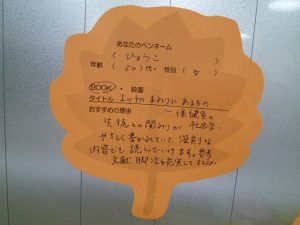 あなたのペンネーム
( ひょうこ )
年齢 ( 50 )代・性別 ( 女 )
BOOK ・ 映画
タイトル エッチのまわりにあるもの
おすすめの理由 ー保健室の
生徒との関わりが 社会学ー
やさしく書かれていて、深刻な
内容でも読んでいけます。参考
文献、脚注も充実してオススメ。